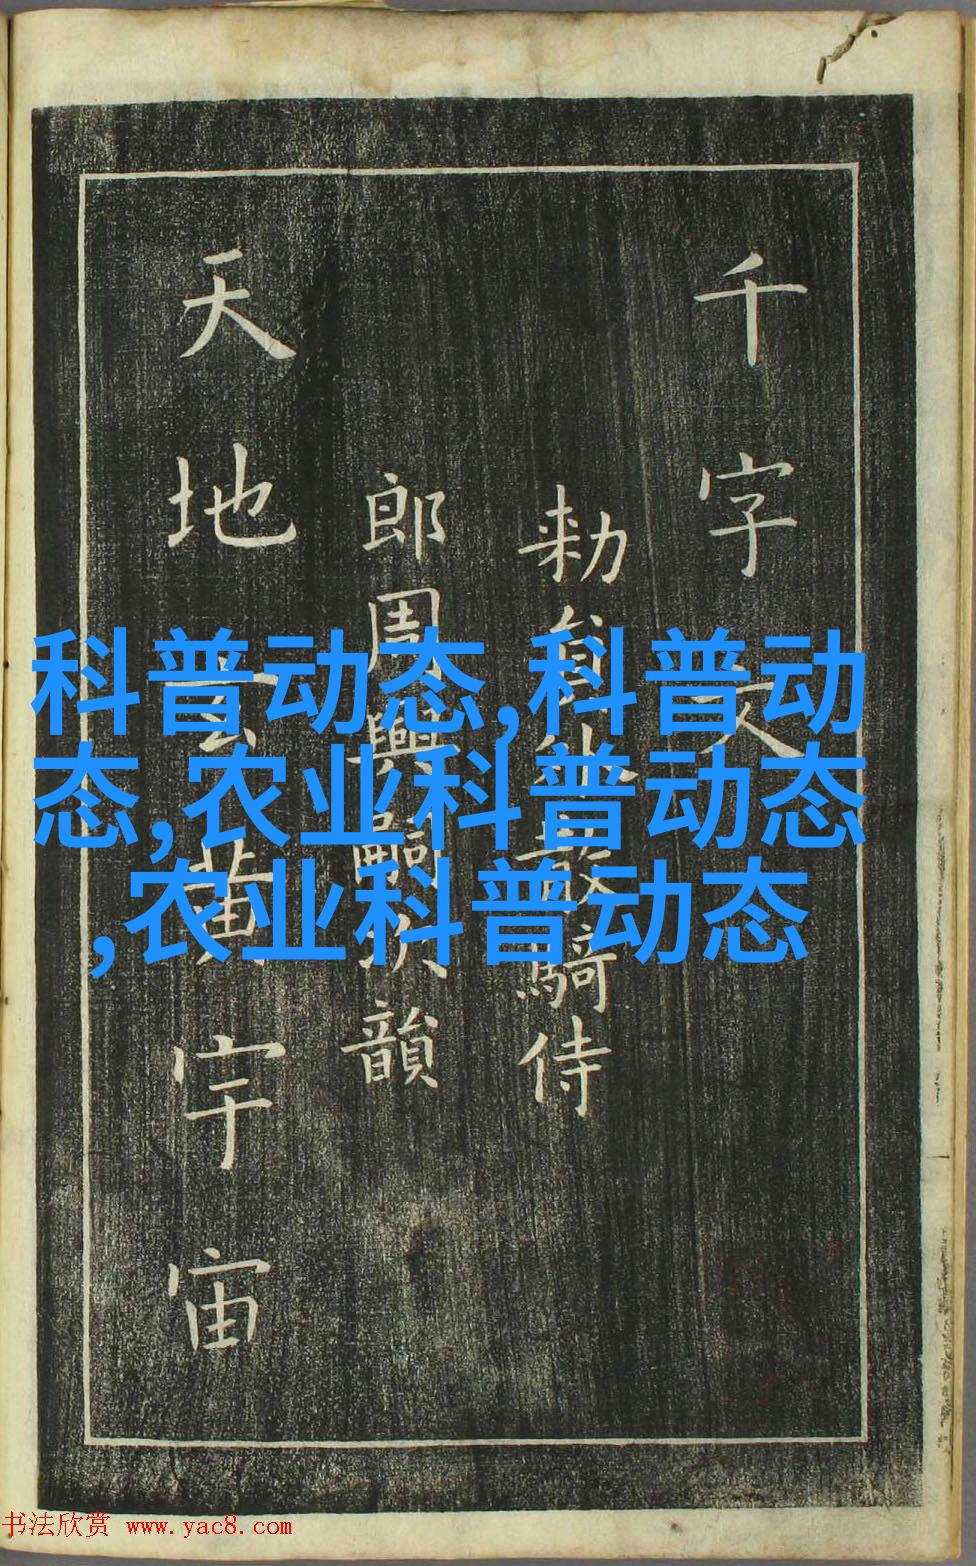 千字文
敕員外散騎侍
郎周興嗣次韻
天地玄黃宇宙
科普动态,科普动
态,农业科普动态
,农业科普动态
书法欣赏 www.yac8.com